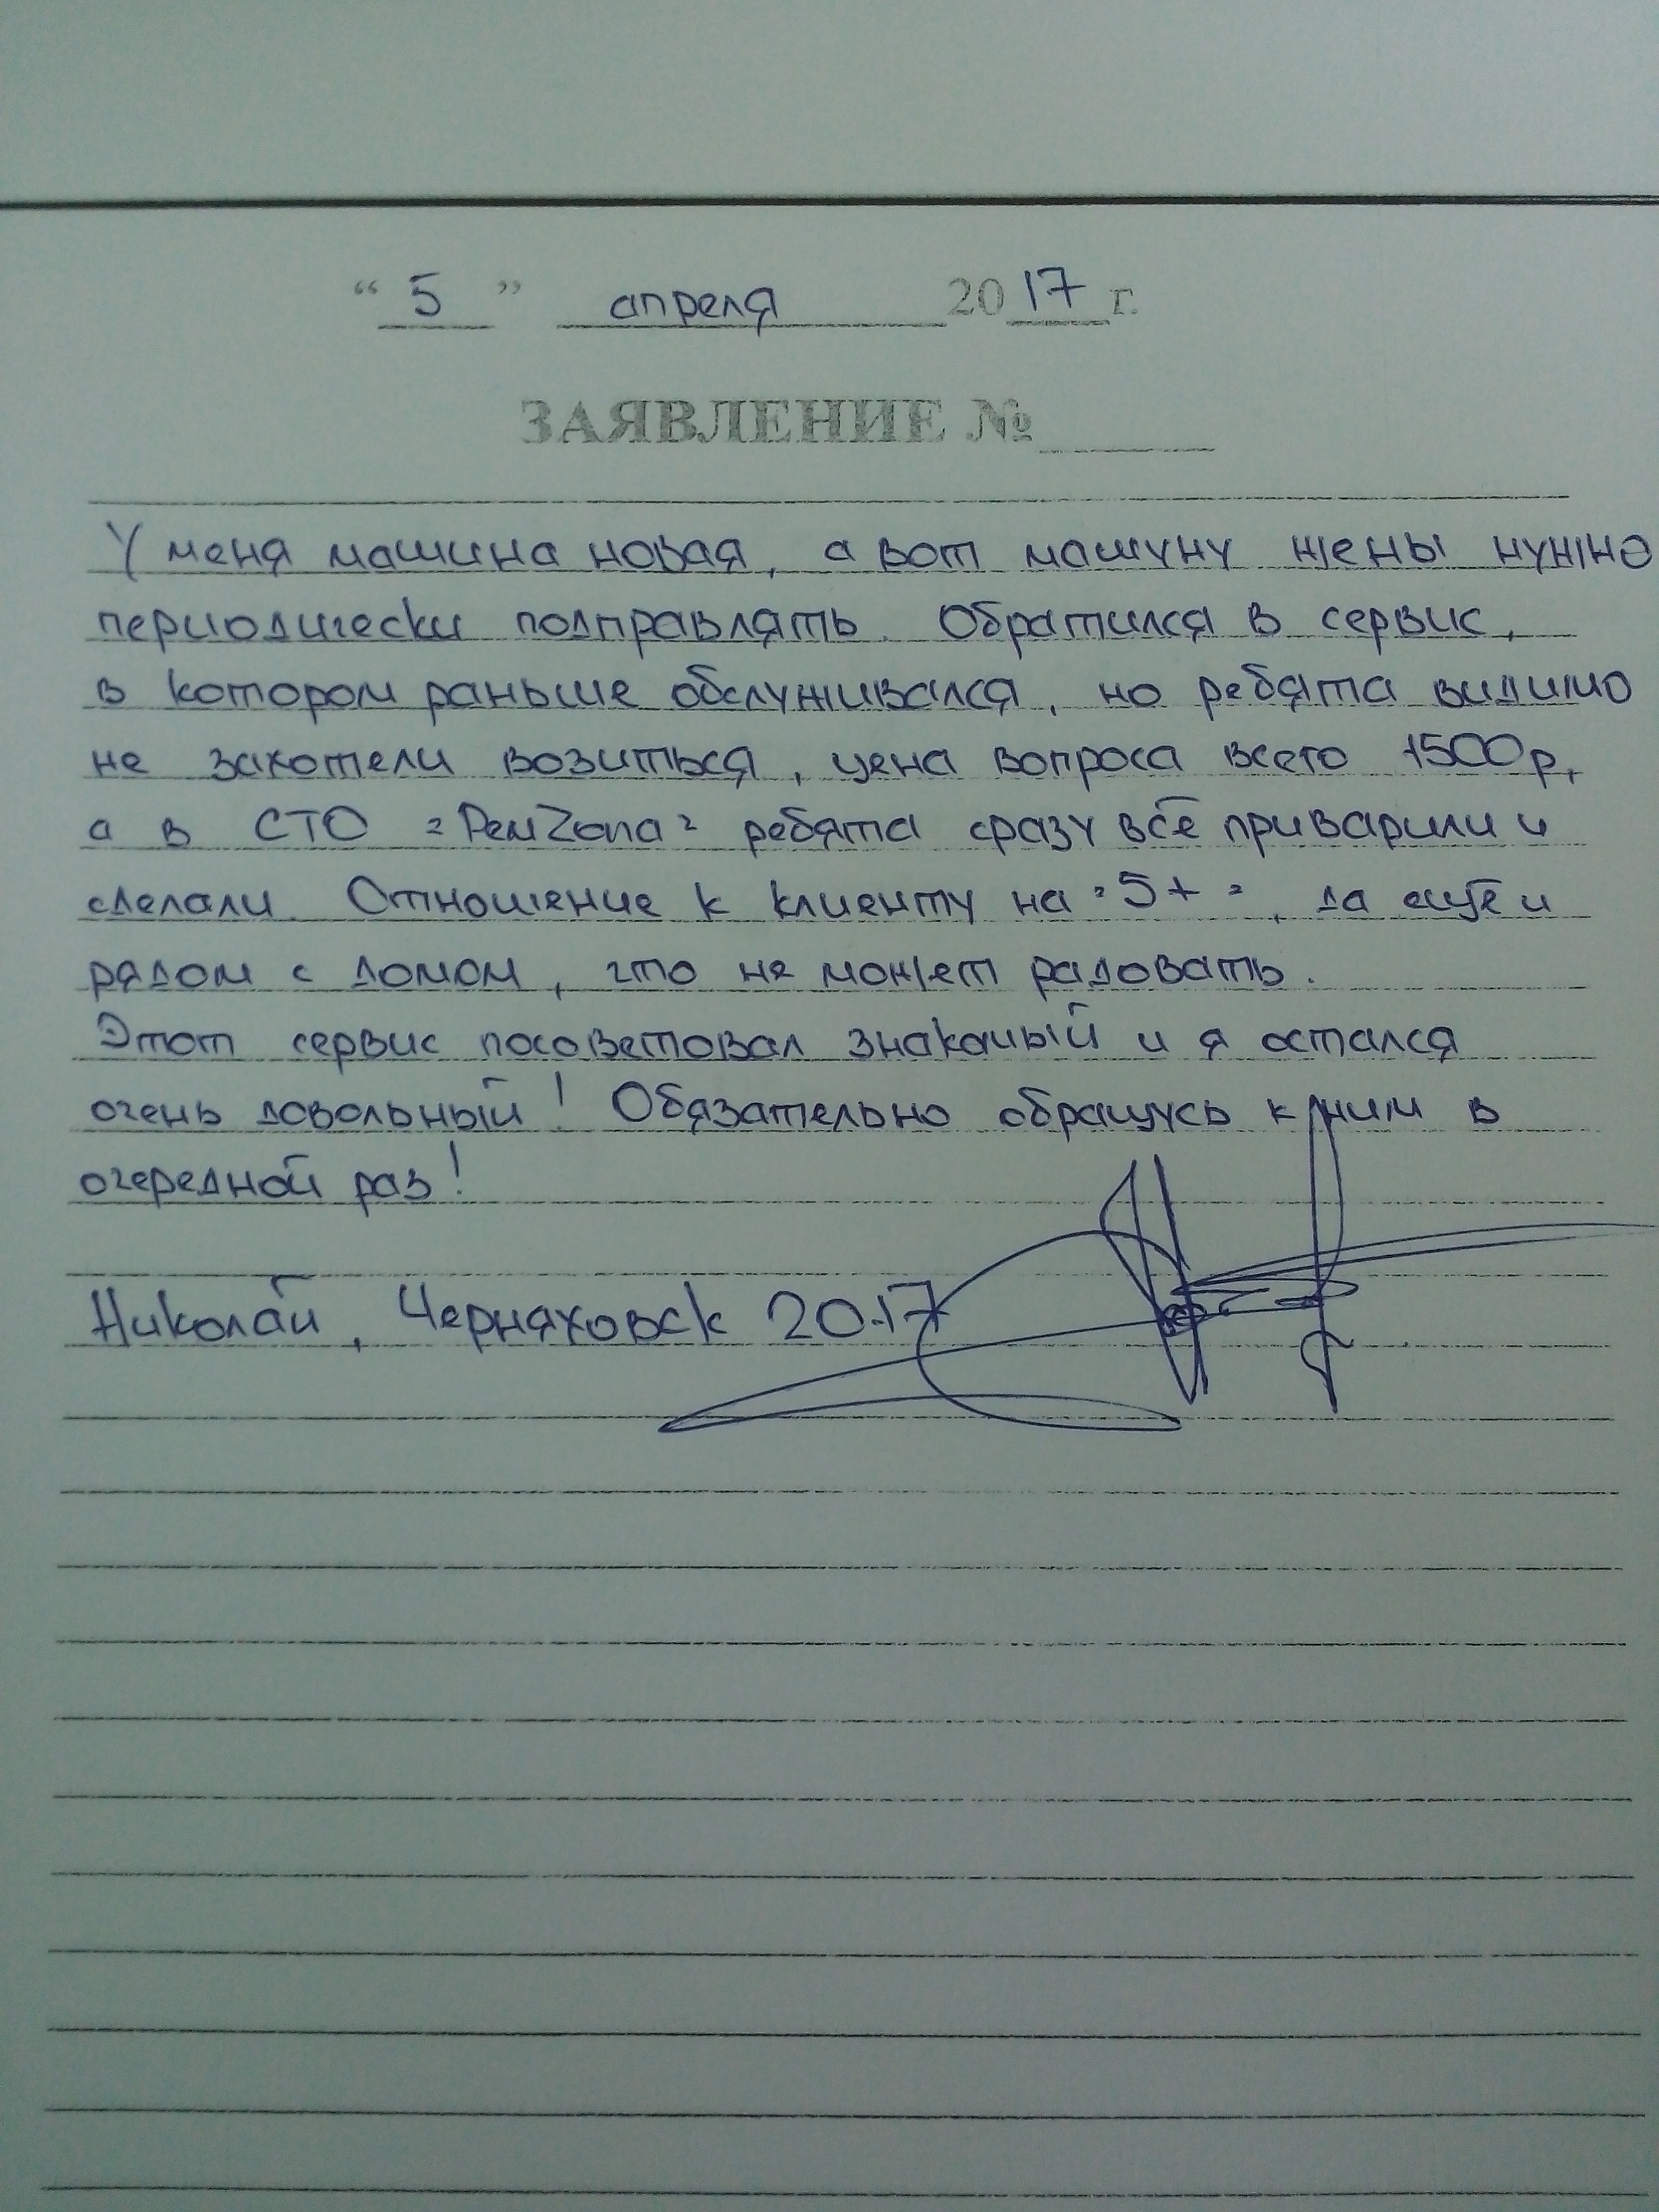 “ 5 ” апреля 2017 г.
ЗАЯВЛЕНИЕ №
У меня машина новая, а вот машуну жены нужно
периодически подправлять. Обратился в сервис,
в котором раньше обслуживался, но ребята видимо
не захотели возиться, цена вопроса всего 1500р,
а в СТО "РемZona" ребята сразу всё приварили и
сделали. Отношение к клиенту на "5+", да ещё и
рядом с домом, что не может радовать.
Этот сервис посоветовал знакомый и я остался
очень довольный! Обязательно обращусь к ним в
очередной раз!
Николай, Черняховск 2017